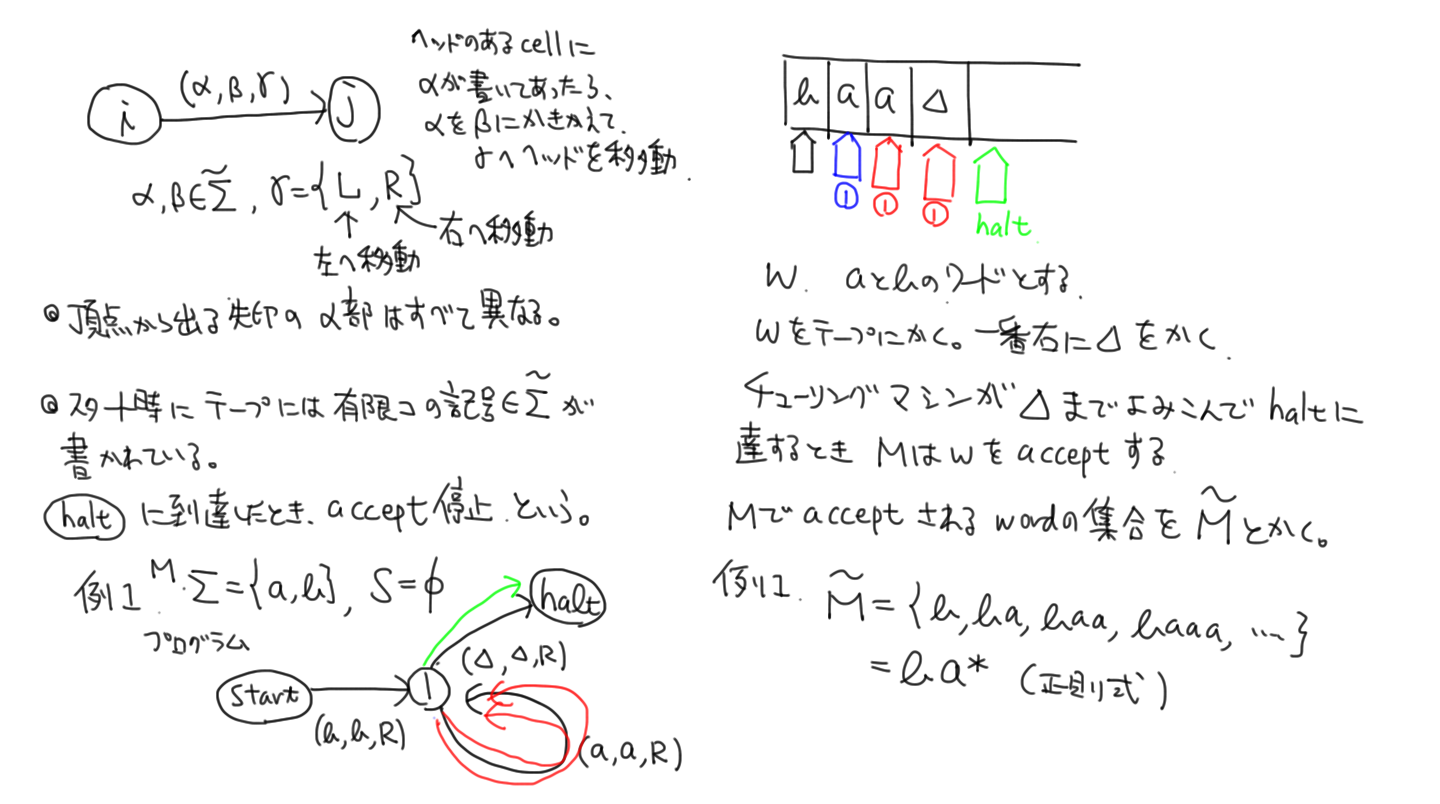 ヘッドのあるcellに
(α,β,γ)
αが書いてあったら、
i
j
αをβにかきかえて、
γへヘッドを移動.
α,β∈Σ̃, γ={L,R}
右へ移動
左へ移動
◎頂点から出る矢印のα部はすべて異なる。
◎スタート時にテープには有限コの記号∈Σ̃が
書かれている。
haltに到達したとき、accept停止という。
例1 M. Σ={a,b}, S=φ
プログラム
halt
(Δ,Δ,R)
start
1
(b,b,R)
(a,a,R)
b a a Δ
① ① ①
halt
W. aとbのワードとする.
Wをテープにかく。一番右にΔをかく.
チューリングマシンがΔまでよみこんでhaltに
達するとき MはWをacceptする.
Mでacceptされるwordの集合をM̃とかく。
例1. M̃={b,ba,baa,baaa,…}
=ba* (正則式)